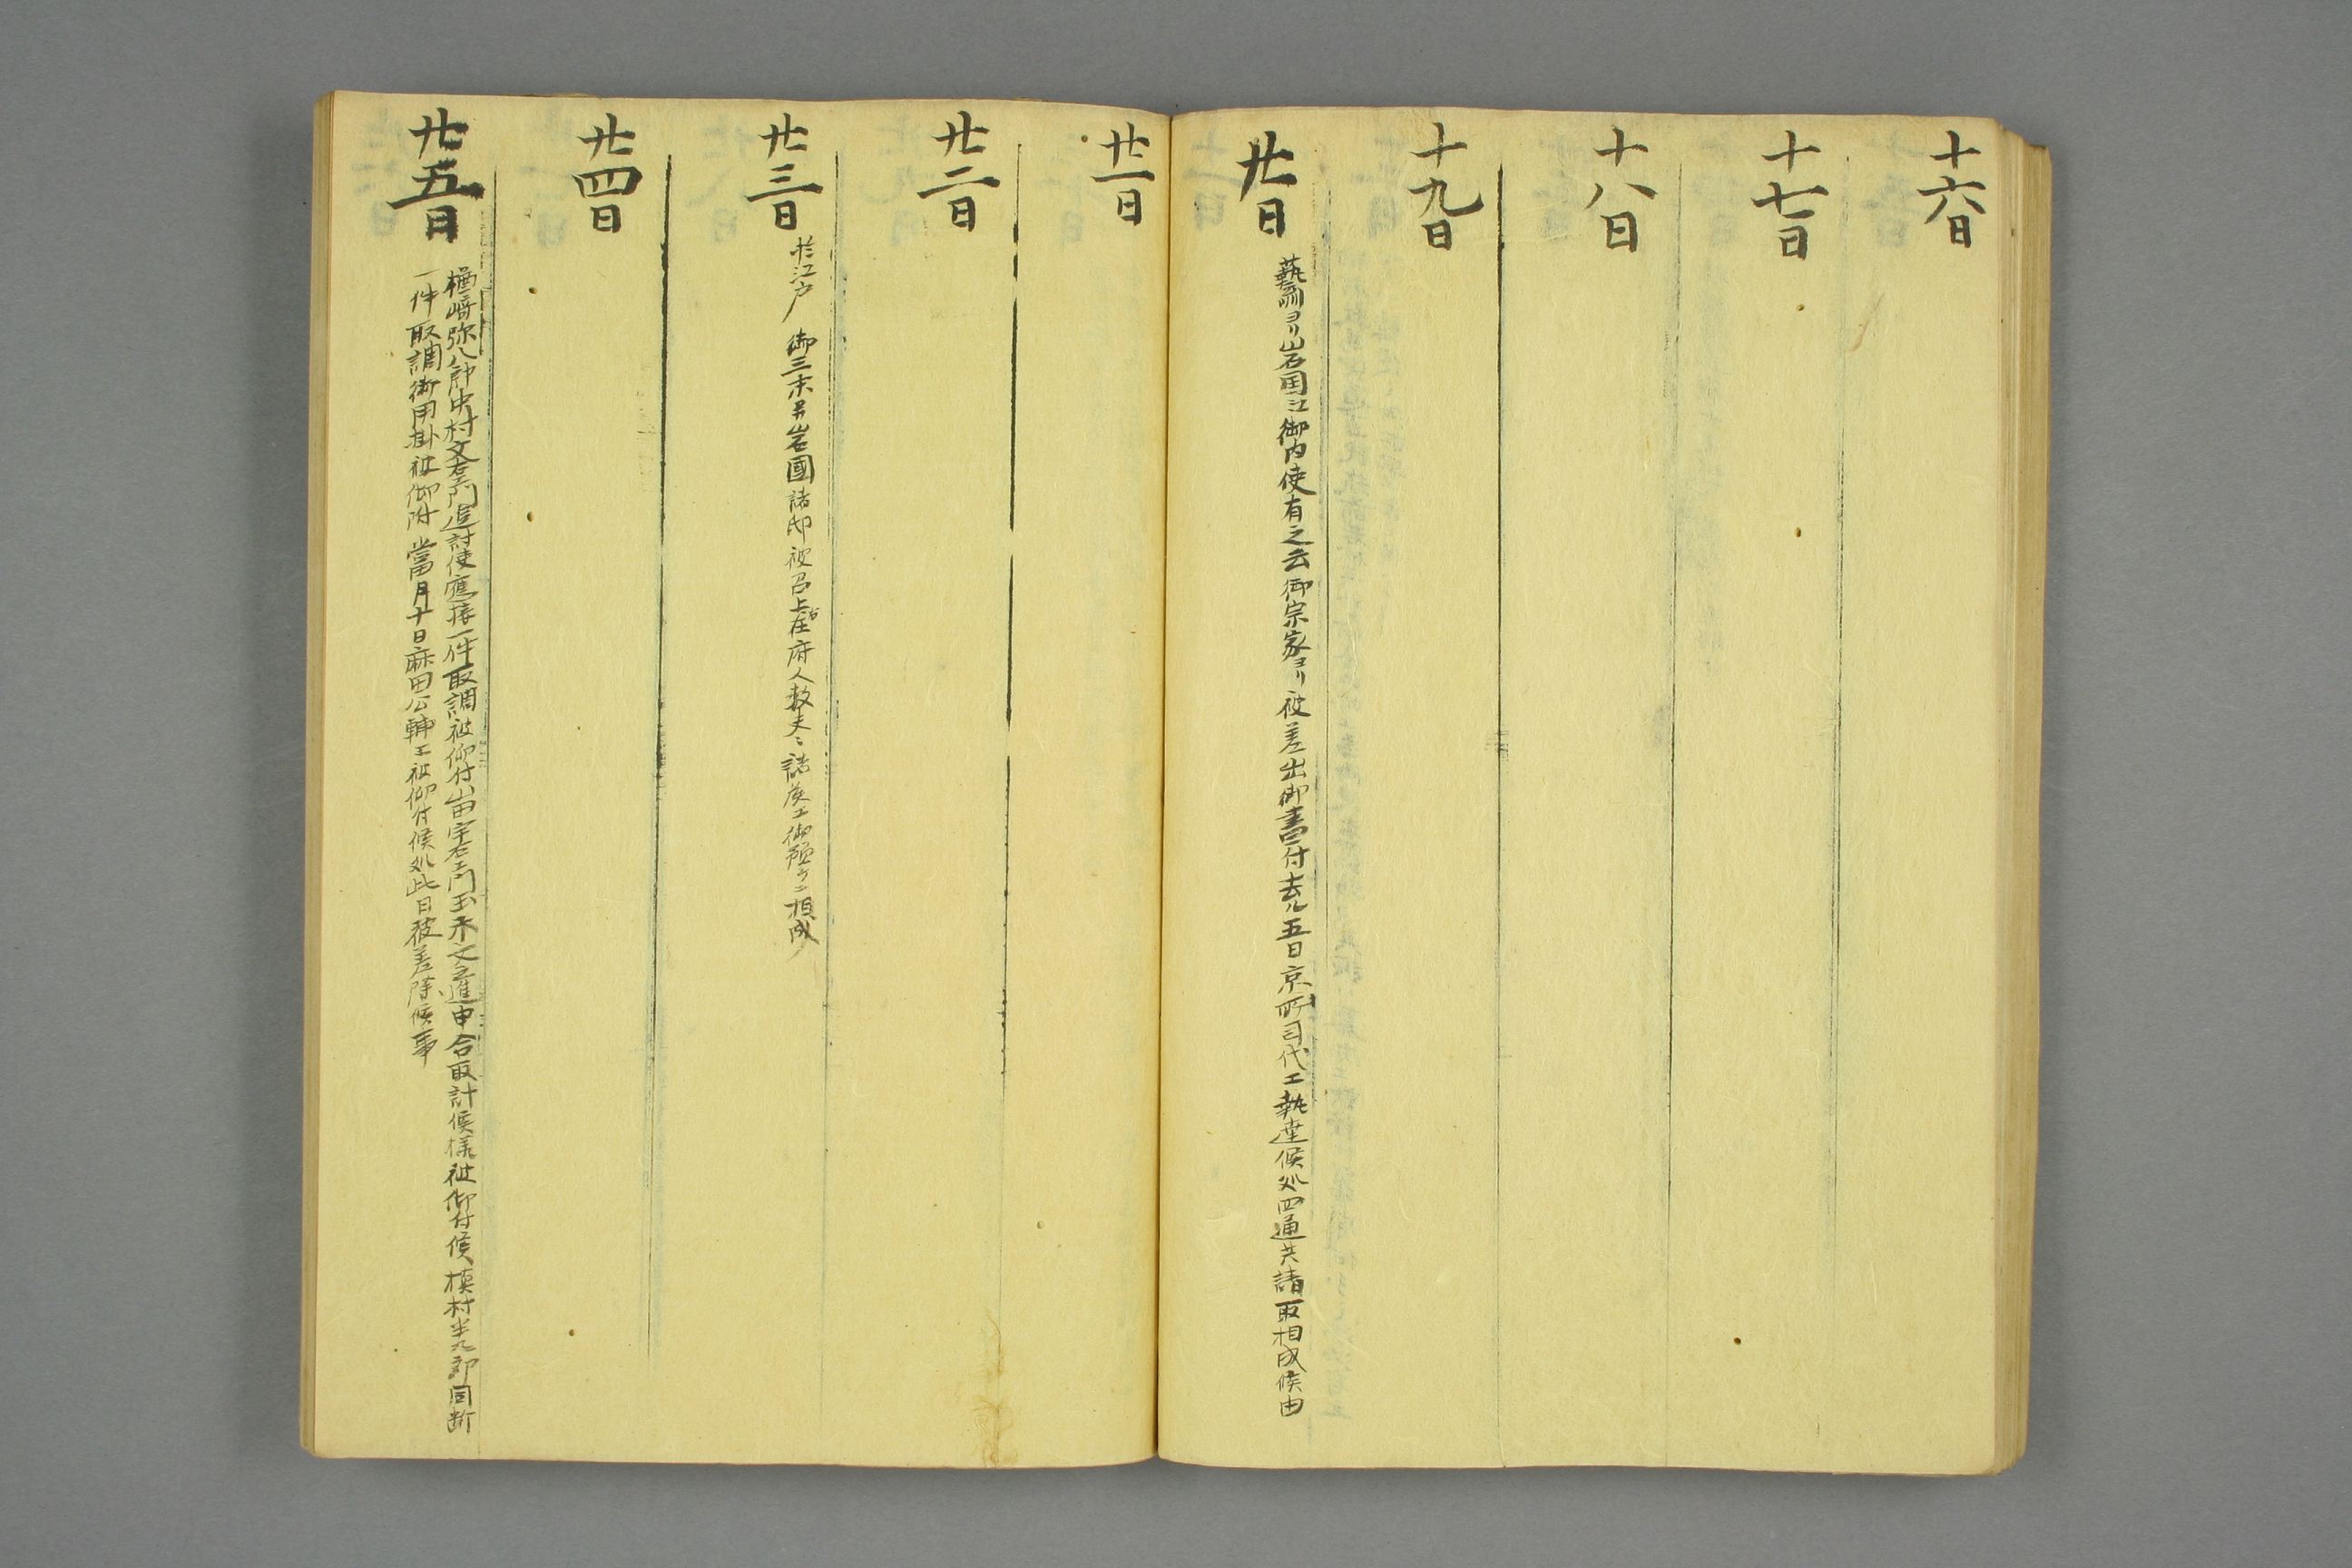 十六日
十七日
十八日
十九日
廿日
藝州ヨリ岩国江御内使有之去御宗家ヨリ被差出御書付去ル五日京所司代エ執達候処四通共請取相成候由
廿一日
廿二日
廿三日
於江戸 御三末并岩國諸邸被召上在府人数夫々諸侯エ御預ケニ相成
廿四日
廿五日
楢﨑弥八郎中村文右衛門追討使應接一件取調被仰付山田宇右衛門玉木文之進申合取計候様被仰付候 槙村半九郎同断
一件取調御用掛被仰付 當月十日麻田公輔エ被仰付候処此日被差除候事